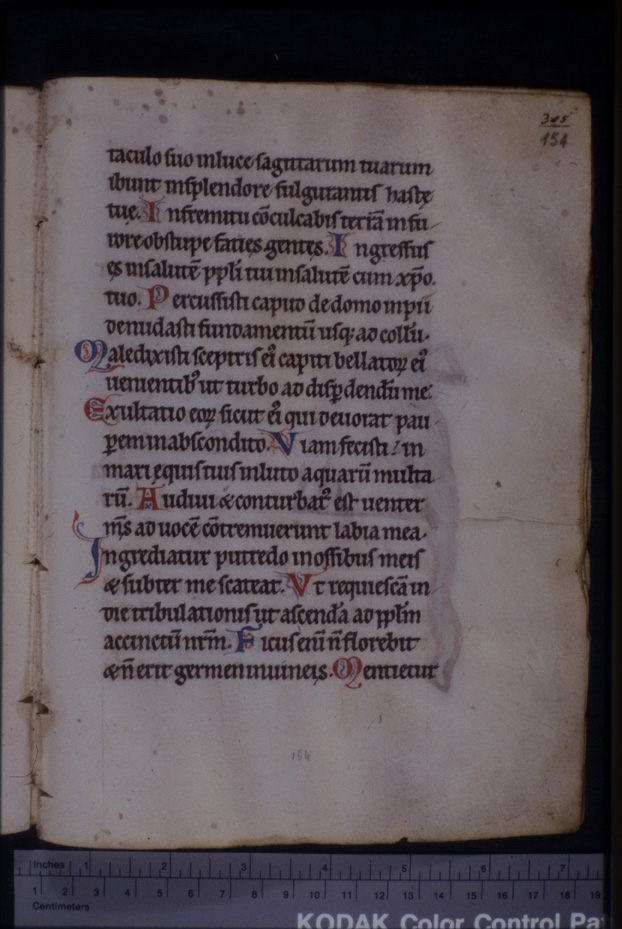 345
154
taculo suo in luce sagittarum tuarum
ibunt in splendore fulgurantis hastę
tuę. In fremitu cōculcabis terrā in fu
rore obstupefaties gentes. Ingressus
ęs in salutē ppli tui in salutē cum xp̄o.
tuo. Percussisti caput de domo inpii
denudasti fundamentū usq; ad collū.
Maledixisti sceptris ei᾽ capiti bellatoꝝ ei᾽
uenientib᾽ ut turbo ad disꝑdendū me.
Exultatio eoꝝ sicut ei᾽ qui deuorat pau
ꝑem in abscondito. Viam fecisti in
mari equis tuis in luto aquarū multa
rū. Audiui & conturbat᾽ est uenter
m̄s ad uocē cōtremuerunt labia mea.
Ingrediatur putredo in ossibus meis
& subter me scateat. Vt requiescā in
die tribulationis ut ascendā ad pplm̄
accinctū nr̄m. Ficus enī n̄ florebit
& n̄ erit germen in uineis. Mentietur
154
Inches 1 2 3 4 5 6 7
1 2 3 4 5 6 7 8 9 10 11 12 13 14 15 16 17 18 19
Centimeters
KODAK Color Control Pa